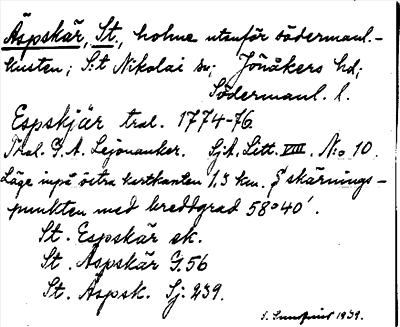 Äspskär, St., holme utanför södermanl.-
kusten; S:t Nikolai sn; Jönåkers hd;
Södermanl. l.
Espskjär tral. 1774-76.
Tral. G. A. Lejonanker. SjA. Litt. VIII. N:o 10.
Läge inpå östra kartkanten 1.3 km. S skärnings-
punkten med breddgrad 58°40'.
St. Espskär ek.
St. Äspskär G.56
St. Äspsk. Sj: 239.
S. 1939.